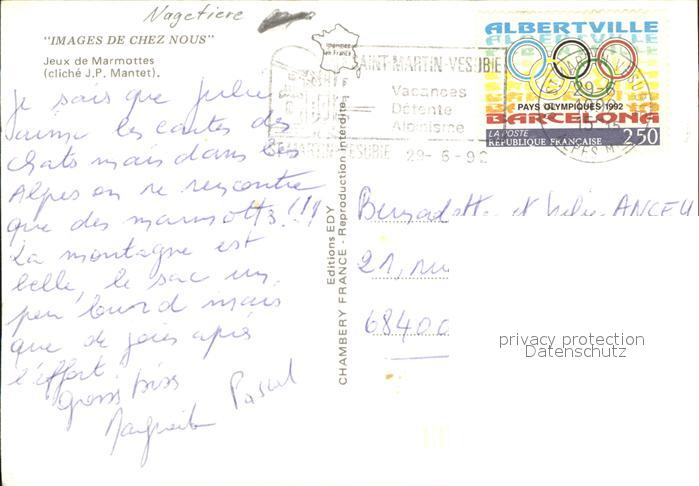 Nagetiere
"IMAGES DE CHEZ NOUS"
Jeux de Marmottes
(cliché J.P. Mantet).
Je sais que Julie
aime les cartes des
chats mais dans les
Alpes on ne rencontre
que des marmotts!!!
La montagne est
belle, le sac un
peu lourd mais
que de joies après
l'effort
Gross bises
Marguerite Pascal
imprimé
en France
Editions EDY
CHAMBERY FRANCE - Reproduction interdite
SAINT-MARTIN-VESUBIE
Vacances
Détente
Alpinisme
MARTIN-VESUBIE 29-6-92
29-6
ALBERTVILLE
PAYS OLYMPIQUES 1992
BARCELONA
LA POSTE
RÉPUBLIQUE FRANÇAISE 2,50
Bernadette et Julie ANCEL
21, rue
68400
privacy protection
Datenschutz